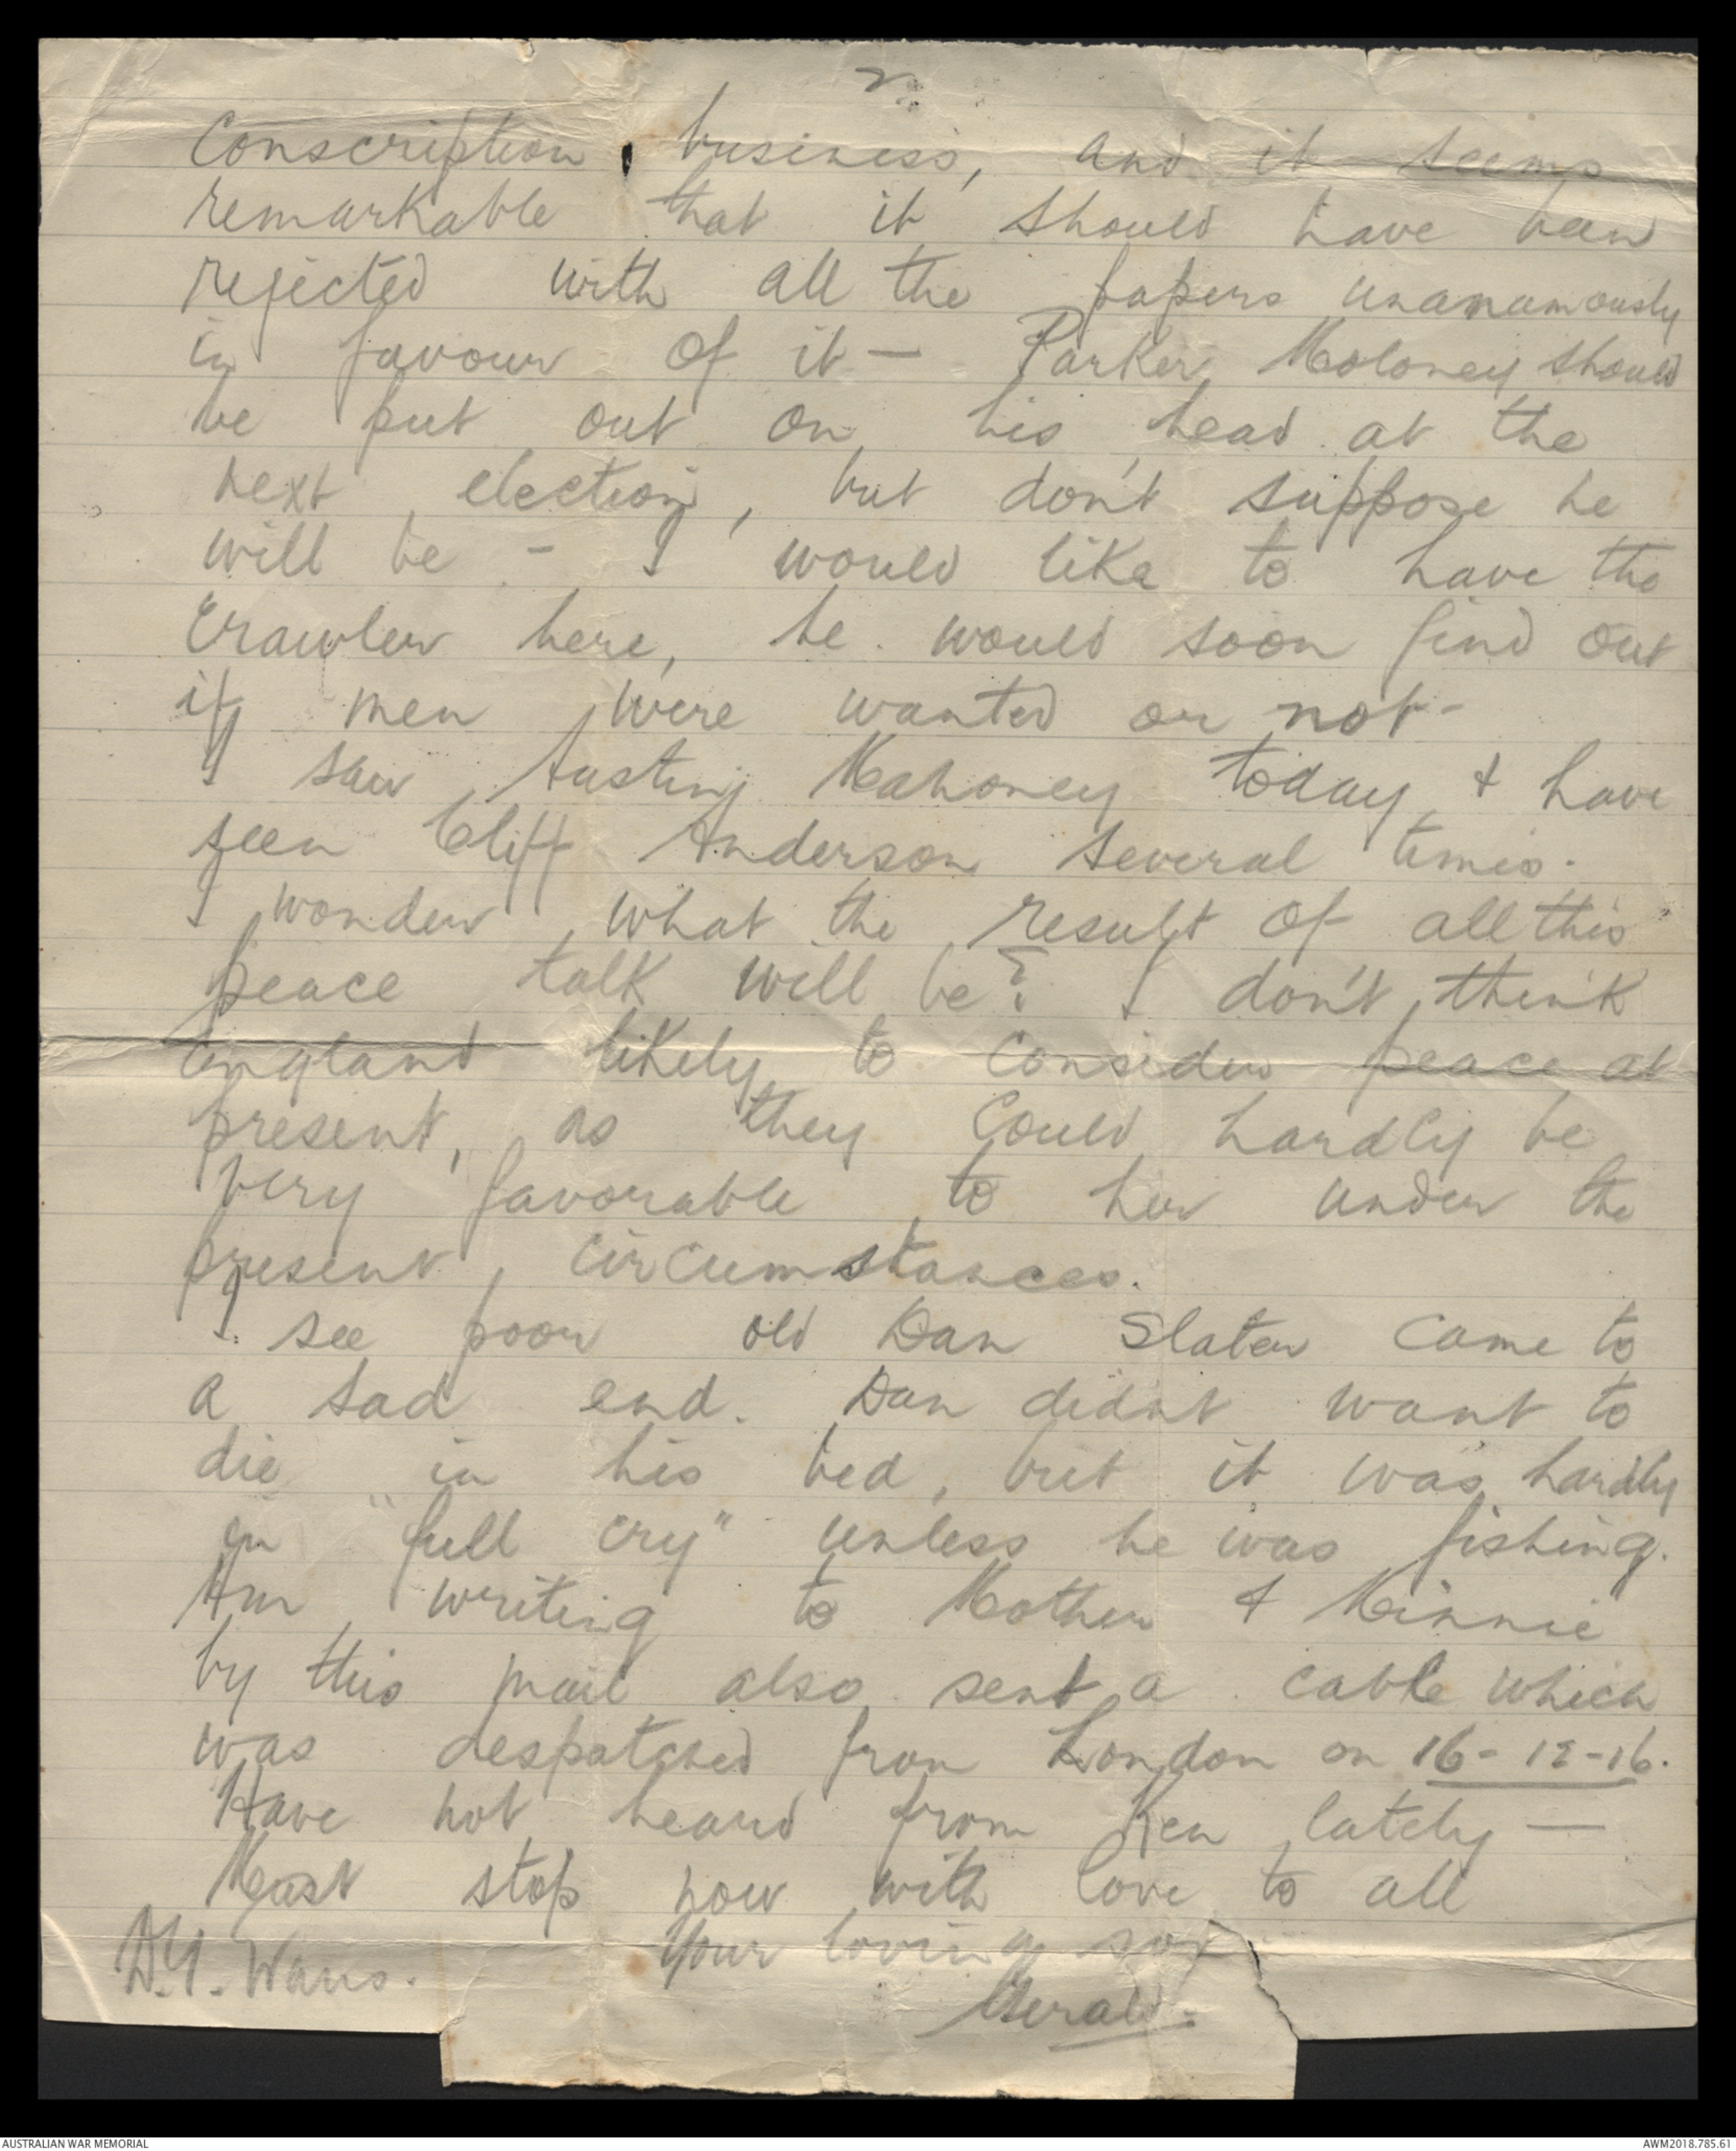 2.
Conscription business, and it seems
remarkable that it should have been
rejected with all the papers unanamously
in favour of it — Parker Moloney should
be put out on his head at the
next election, but don't suppose he
will be - I would like to have the
Crawler here, he would soon find out
if men were wanted or not-
I saw Austin Mahoney today & have
seen Cliff Anderson several times.
I wonder what the result of all this
peace talk will be? I don't think
England likely to consider peace at
present, as they could hardly be
very favorable to her under the
present circumstances.
I see poor old Dan Slater came to
a sad end. Dan didnt want to
die in his bed, but it was hardly
in "full cry" unless he was fishing.
Am writing to Mother & Minnie
by this mail also sent a cable which
was despatched from London on 16-12-16.
Have not heard from Ken lately —
Must stop now with love to all
Your loving son
Gerald.
AUSTRALIAN WAR MEMORIAL
AWM2018.785.61